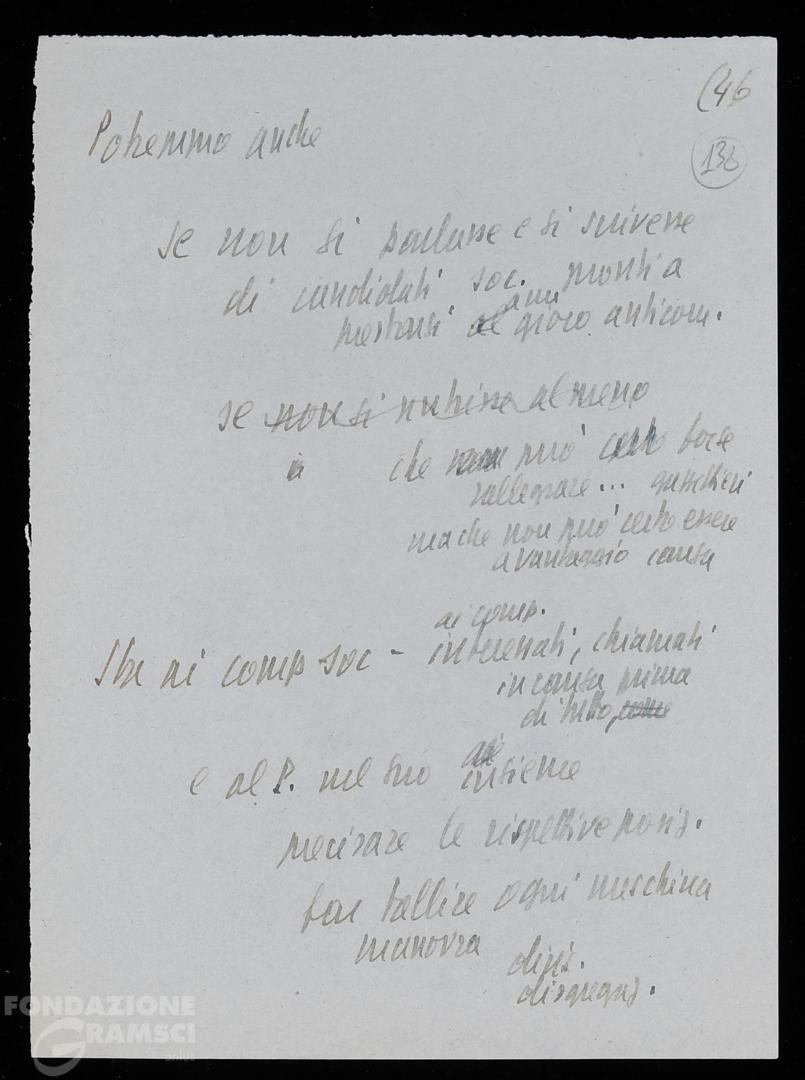 (46
138
Potremmo anche
se non si parlasse e si scrivesse
di candidati soc. pronti a
prestarsi al gioco anticom.
anni
se non si nutrisse almeno
che può certo forse
rallegrare...
ma che non può certo essere
a vantaggio causa
ai comp.
Sta ai comp soc - interessati, chiamati
in causa prima
di tutto, come
e al P. nel suo insieme
precisare le rispettive posiz.
far fallire ogni meschina
manovra
divis.
disgregaz.
FONDAZIONE
GRAMSCI
onlus